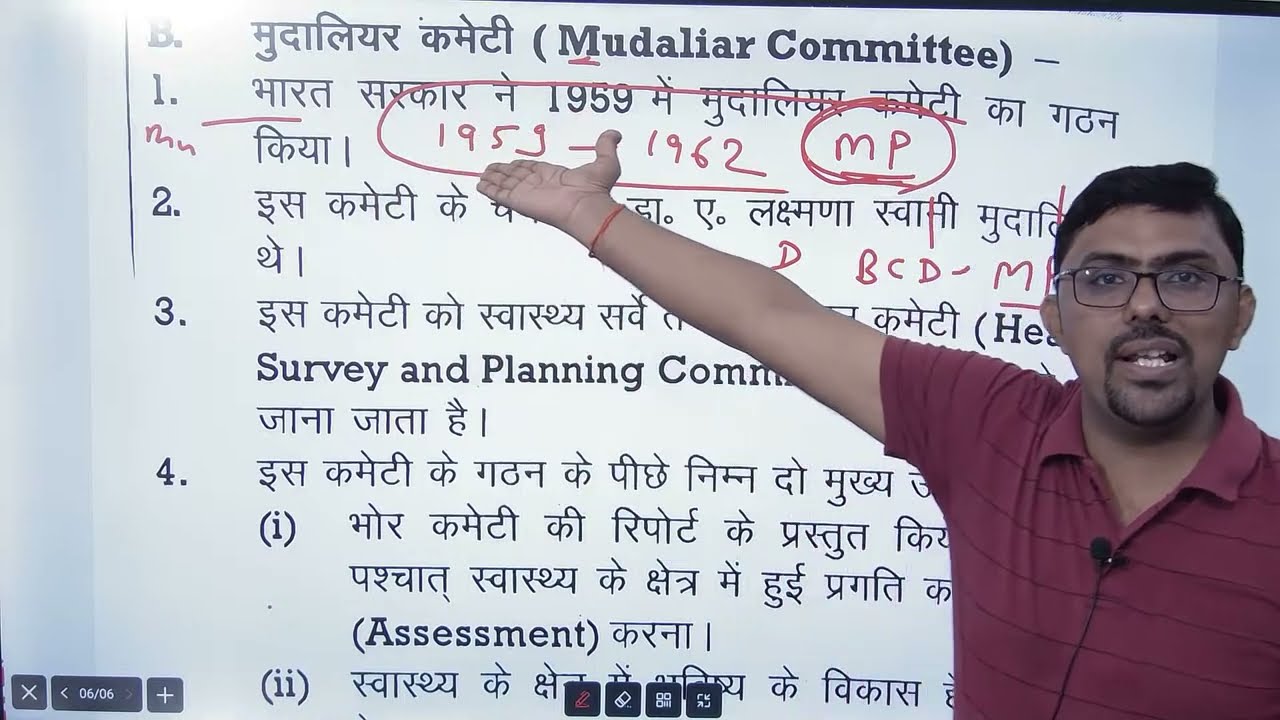 B. मुदालियर कमेटी ( Mudaliar Committee) –
1. भारत सरकार ने 1959 में मुदालियर कमेटी का गठन
किया। 1959 – 1962 MP
2. इस कमेटी के डा. ए. लक्ष्मणा स्वामी
थे। D BCD - MP
3. इस कमेटी को स्वास्थ्य सर्वे कमेटी
Survey and Planning
जाना जाता है।
4. इस कमेटी के गठन के पीछे निम्न दो मुख्य
(i) भोर कमेटी की रिपोर्ट के प्रस्तुत
पश्चात् स्वास्थ्य के क्षेत्र में हुई प्रगति
(Assessment) करना।
(ii) स्वास्थ्य के के विकास
06/06